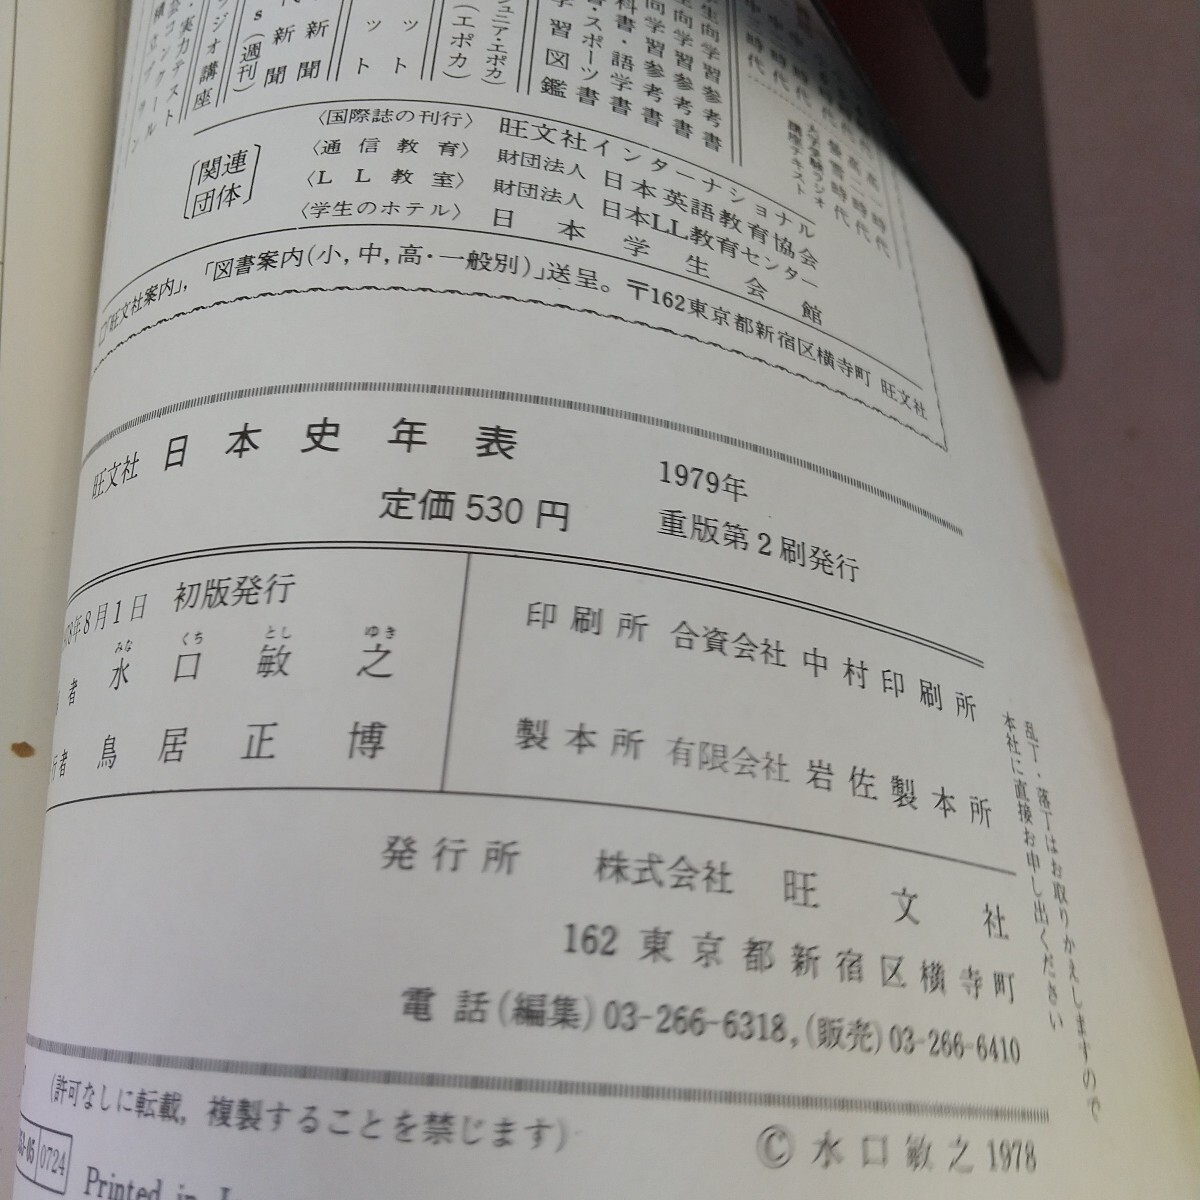 生向学習参考書
向学習参考書
科書・語学書
スポーツ書
学習図鑑
ジュニア・エポカ
(エポカ)
新聞
新聞
s(週刊)
ラジオ講座
実力テスト
コンクール
大学受験ラジオ
講座テキスト
〔関連団体〕
〈国際誌の刊行〉 旺文社インターナショナル
〈通信教育〉 財団法人 日本英語教育協会
〈LL教室〉 財団法人 日本LL教育センター
〈学生のホテル〉 日本学生会館
□「旺文社案内」,「図書案内(小,中,高・一般別)」送呈。〒162東京都新宿区横寺町 旺文社
旺文社 日本史年表
定価530円
1979年
重版第2刷発行
78年8月1日 初版発行
者 水口敏之
みな くち とし ゆき
行者 鳥居正博
印刷所 合資会社 中村印刷所
製本所 有限会社 岩佐製本所
発行所 株式会社 旺文社
162 東京都新宿区横寺町
電話(編集)03-266-6318,(販売)03-266-6410
乱丁・落丁はお取りかえしますので
本社に直接お申し出ください
(許可なしに転載,複製することを禁じます)
© 水口敏之 1978
0724
Printed in